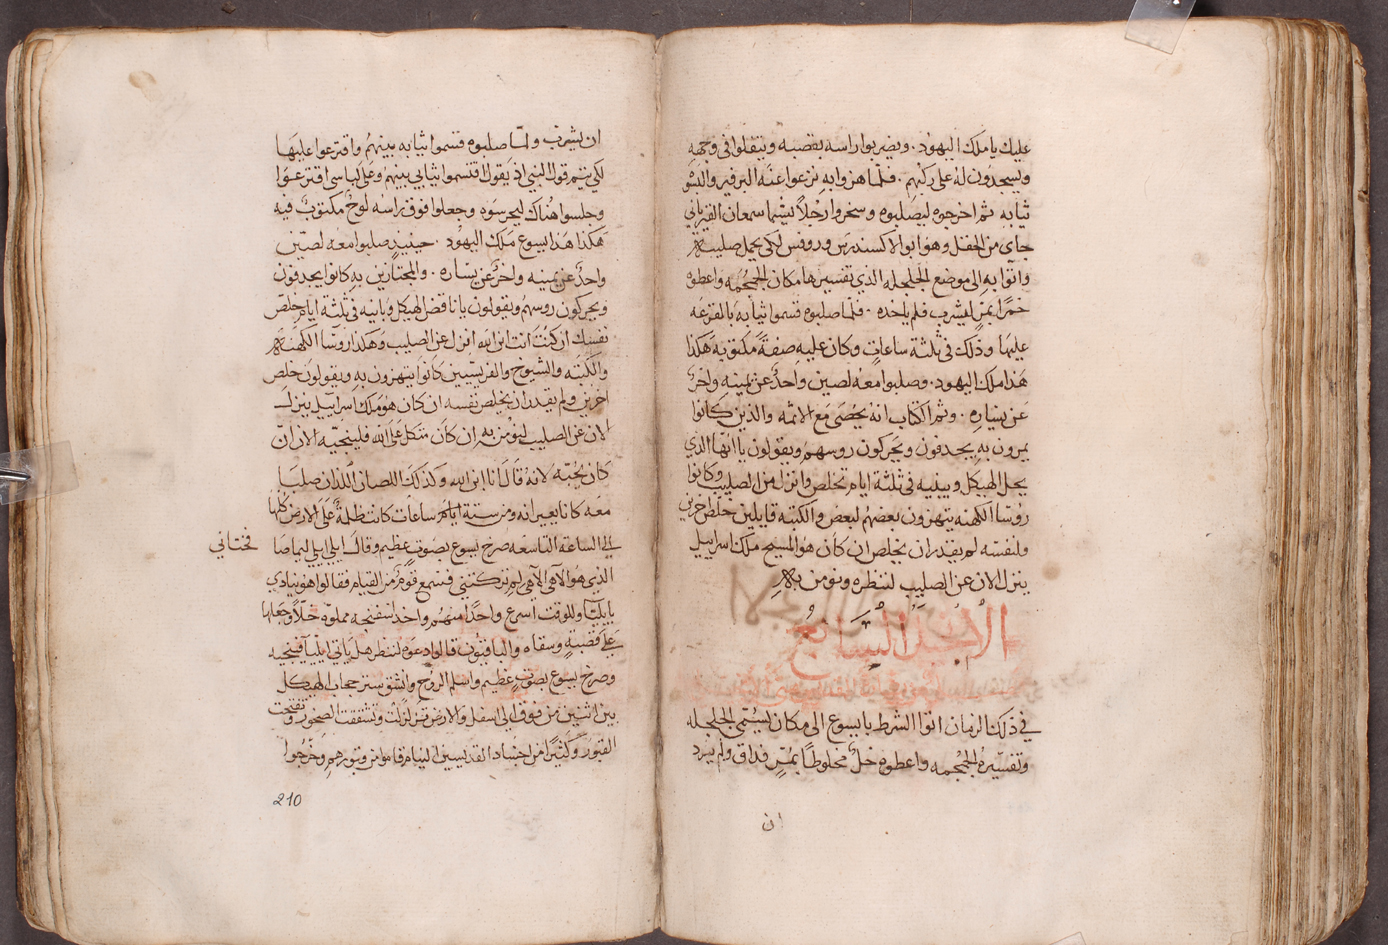 عليك يا ملك اليهود. ويضربوا راسه بقصبه ويتفلوا في وجهه
ويسجدون له على ركبهم. فلما هزوا به نزعوا عنه البرفير والبسوه
ثيابه ثم اخرجوه ليصلبوه وسخروا رجلاً يسما سمعان القيرياني
جاى من الحقل وهو ابو الاكسندرس وروفس لكى يحمل صليبه
واتوا به الى موضع الجلجله الذي تفسيرها مكان الجمجمه واعطوه
خمرا بمر ليشرب فلم ياخذه. فلما صلبوه قسموا ثيابه بالمقرعه
عليها وذلك في ثلثة ساعات وكان عليه صفة مكتوبة هكذا
هذا ملك اليهود. وصلبوا معه لصين واحد عن يمينه واخر
عن يساره. وتم الكتاب انه يحصى مع الاثمه والذين كانوا
يمرون به يجدفون ويحركون روسهم ويقولون يا ايها الذي
يحل الهيكل ويبنيه في ثلثة ايام تخلص وانزل من الصليب وكانوا
روسا الكهنه يتهزون بعضهم لبعض والكتبه قايلين خلص اخرين
ولنفسه لم يقدر ان يخلص ان كان هو المسيح ملك اسراييل
ينزل الان عن الصليب لننظره ونومن به
الانجيل السابع
في ذلك الزمان اتوا الشرط بايسوع الى مكان يسمى الجلجله
وتفسيره الجمجمه واعطوه خل مخلوطا بمر فداق ولم يرد
ان
ان يشرب ولما صلبوه قسموا ثيابه بينهم واقترعوا عليها
لكي يتم قول النبي اذ يقول اقتسموا ثيابي بينهم وعلى لباسي اقترعوا
وجلسوا هناك ليحرسوه وجعلوا فوق راسه لوح مكتوب فيه
هكذا هذا يسوع ملك اليهود. حينيذ صلبوا معه لصين
واحد عن يمينه واخر عن يساره. والمجتازين به كانوا يجدفون
ويحركون روسهم ويقولون يا ناقض الهيكل وبانيه في ثلثة ايام خلص
نفسك ان كنت انت ابن الله انزل عن الصليب وهكذا روسا الكهنه
والكتبه والشيوخ والفريسيين كانوا يتهزون به ويقولون خلص
اخرين ولم يقدر ان يخلص نفسه ان كان هو ملك اسراييل ينزل
الان عن الصليب لنومن به ان كان متكل على الله فلينجيه الان ان
كان يحبه لانه قال انا ابن الله وكذلك اللصان اللذان صلبا
معه كانا يعيرانه ومن ستة ساعات كانت ظلمة على الارض كلها
الى الساعه التاسعه صرخ يسوع بصوت عظيم وقال ايلي ايلي ليما صا
فختاني
الذي هو الاهي الاهي لم تركتني فسمع قوم من القيام فقالوا هو ينادي
يا يليا وللوقت اسرع واحداً منهم واخذ سفنجه مملوه خلا وجعلها
على قصبة وسقاه والباقيون قالوا دعوه لننظر هل ياتي ايليا فينجيه
وصرخ يسوع بصوت عظيم واسلم الروح وانشق ستر حجاب الهيكل
بين اثنين من فوق الى اسفل والارض تزلزلت وتشققت الصخور وتفتحت
القبور وكثيرا من اجساد القديسين النيام قاموا من قبورهم وخرجوا
210